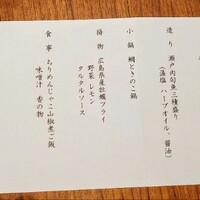 造り 瀬戸内旬魚三種盛り
(藻塩 ハーブオイル、醤油)
小鍋 鯛ときのこ鍋
揚物 広島県産牡蠣フライ
野菜 レモン
タルタルソース
食事 ちりめんじゃこ山椒煮ご飯
味噌汁 香の物